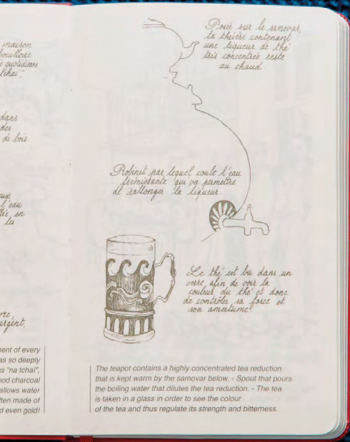 maison
bouillant
quotidiens
dans
de bois
l'eau
en
argent,
ment of every
as so deeply
s "na tchaï",
ood charcoal
allows water
ften made of
d even gold!
Posée sur le samovar,
la théière contenant
une liqueur de thé
très concentrée reste
au chaud.
Robinet par lequel coule l'eau
frémissante qui va permettre
de rallonger la liqueur.
Le thé est bu dans un
verre afin de voir la
couleur du thé et donc
de contrôler sa force et
son amertume!
The teapot contains a highly concentrated tea reduction
that is kept warm by the samovar below. - Spout that pours
the boiling water that dilutes the tea reduction. - The tea
is taken in a glass in order to see the colour
of the tea and thus regulate its strength and bitterness.